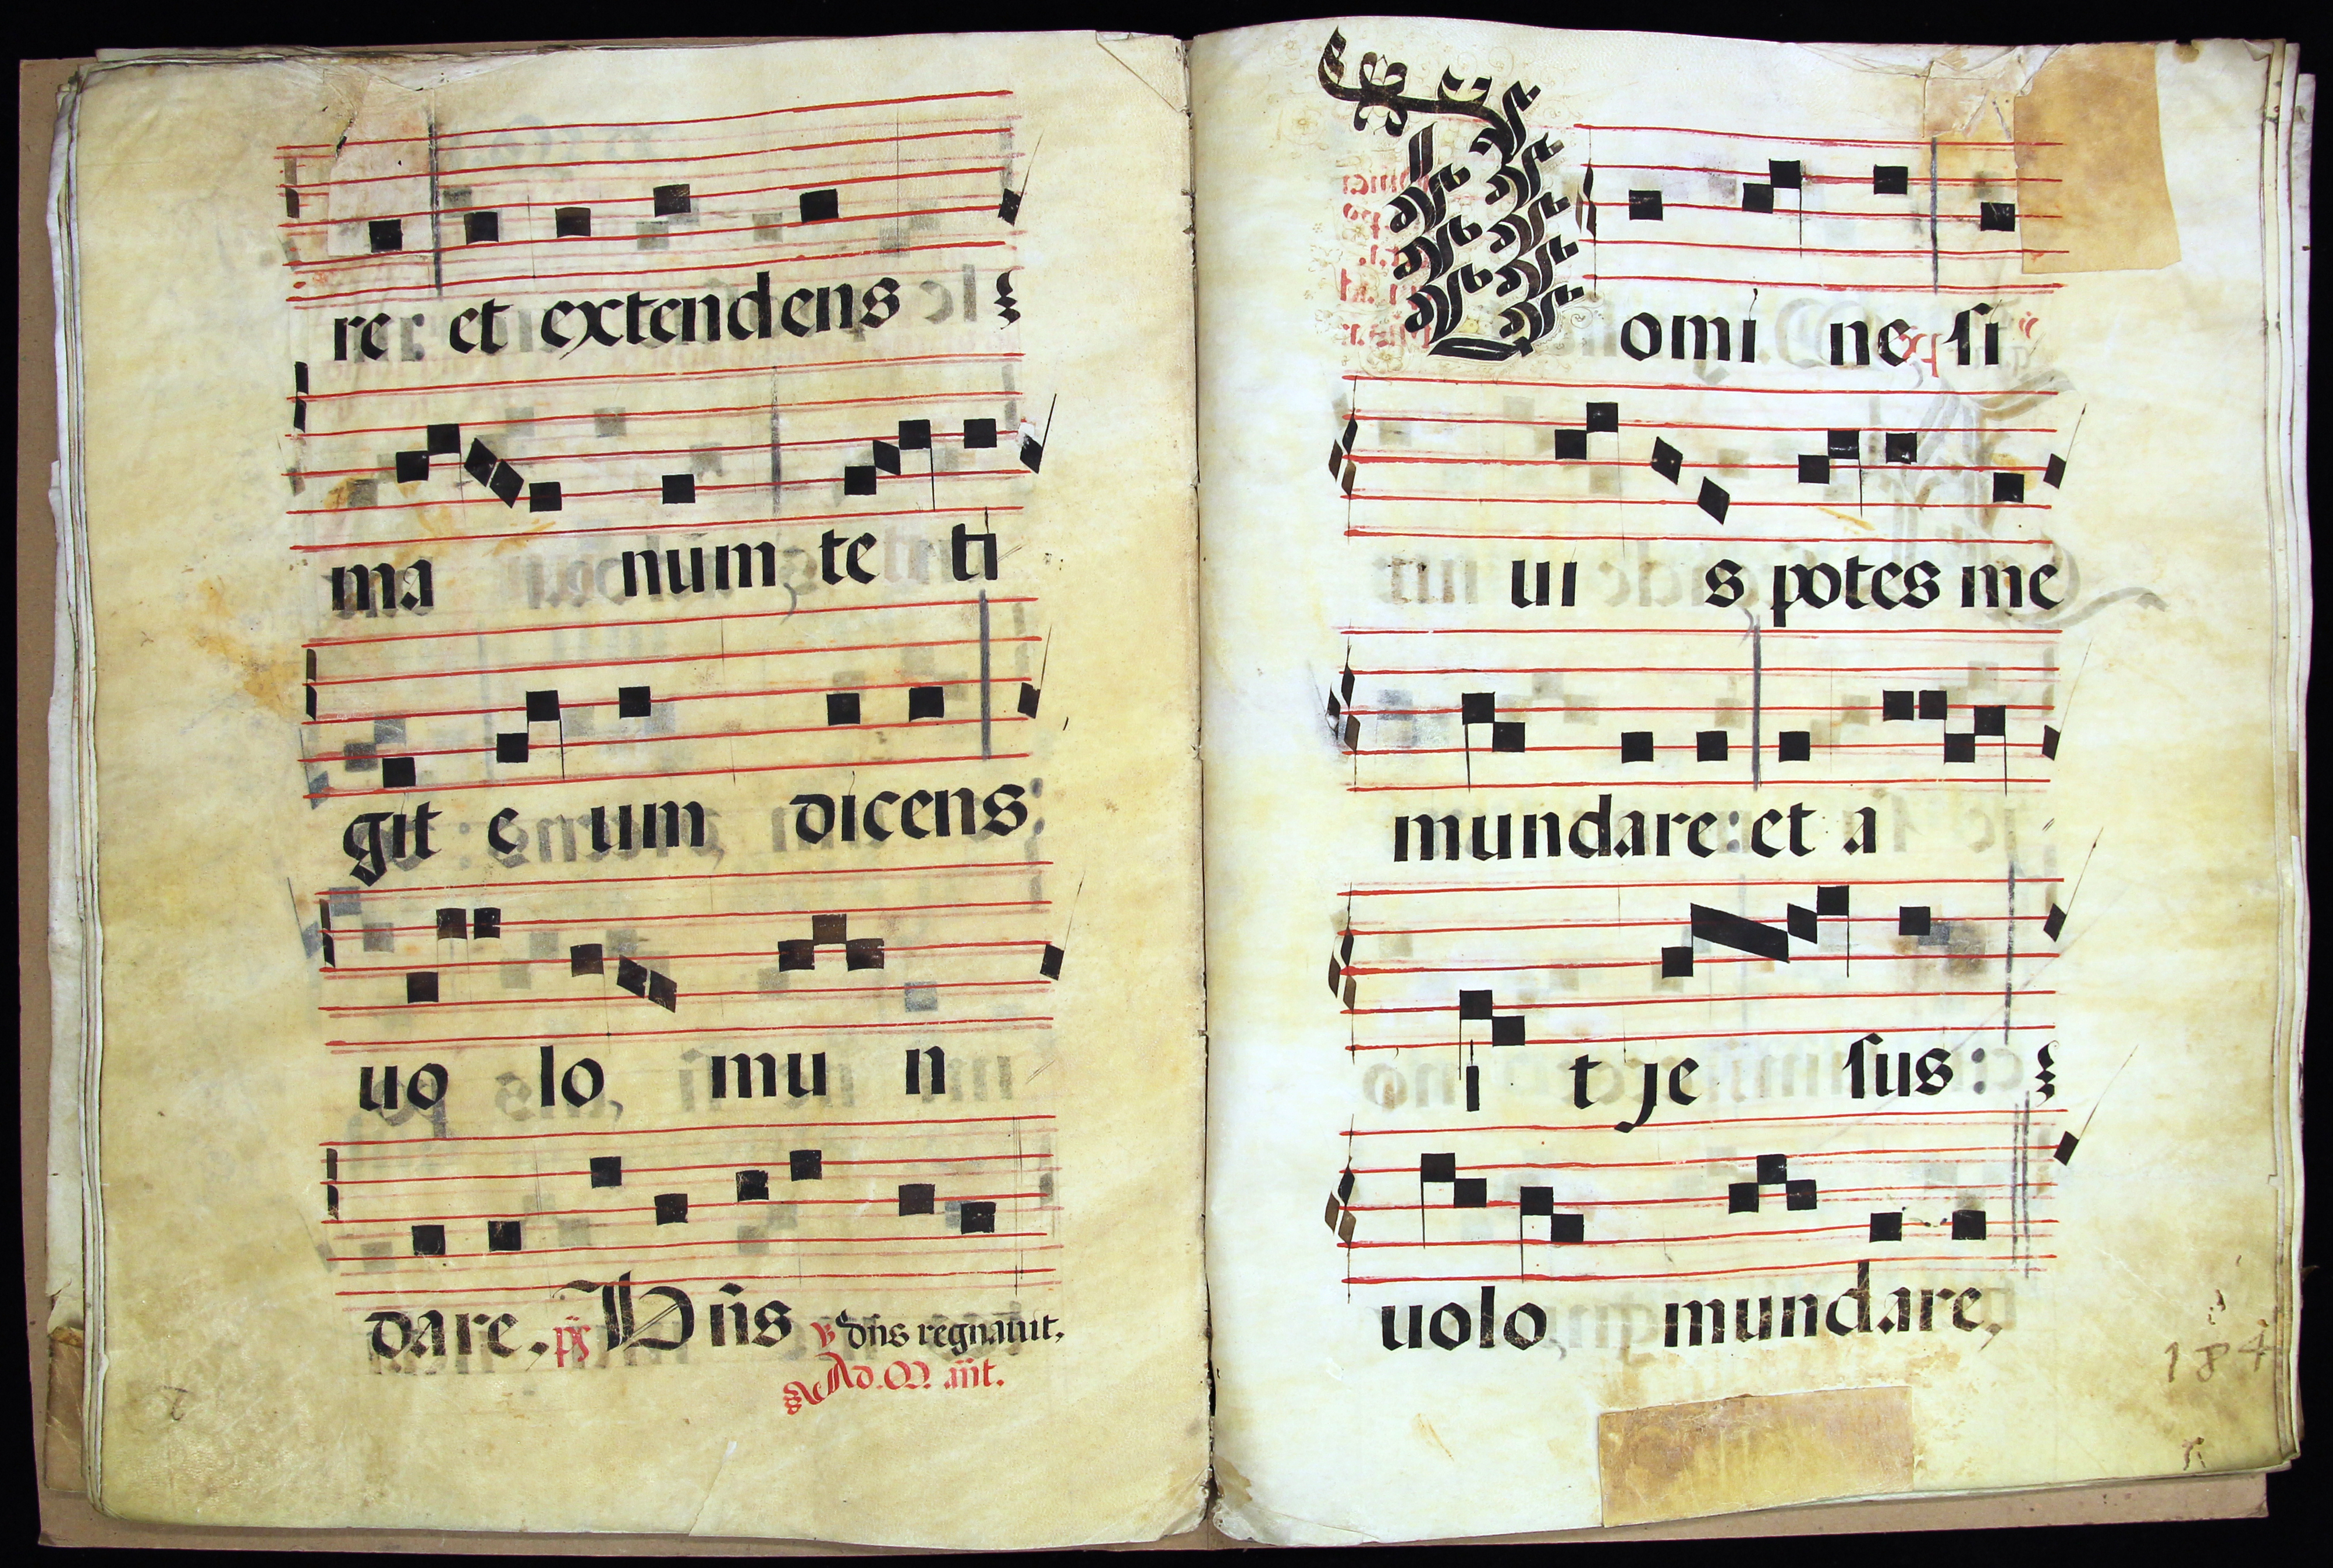 re: et extendens
ma num te ti
git e um dicens
uo lo, mu n
dare. ps Dñs ℣ dñs regnauit,
Ad. M. añt.
Domi ne si
ui s potes me
mundare: et a
i t je sus:
uolo mundare,
184